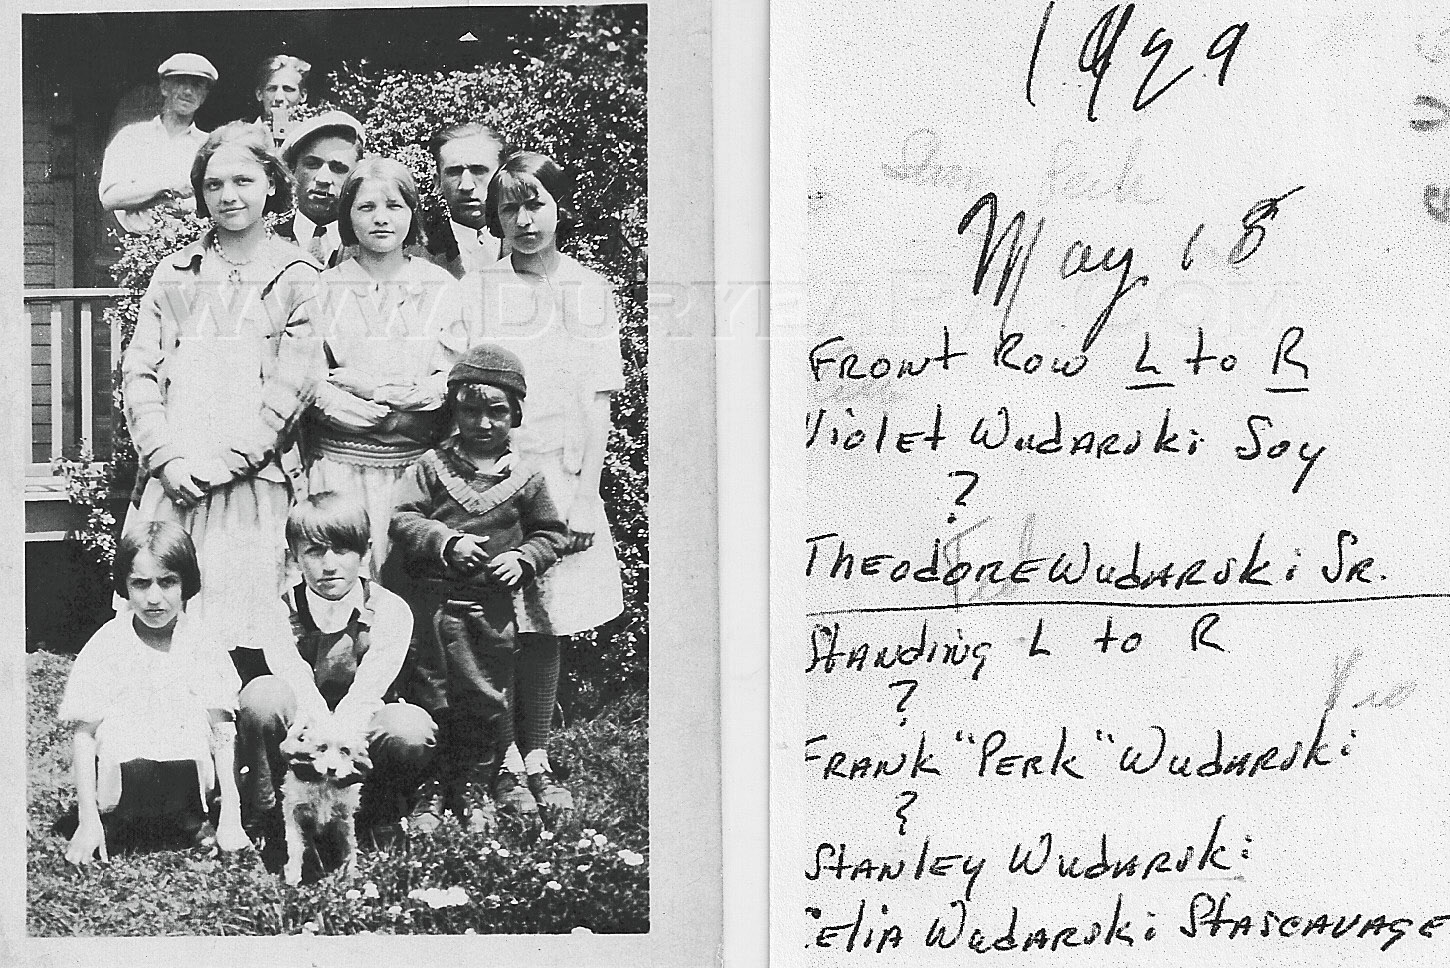 1929
May 18
Front Row L to R
Violet Wudarski Soy
?
Theodore Wudarski Sr.
Standing L to R
?
Frank "Perk" Wudarski
?
Stanley Wudarski
Celia Wudarski Stascavage